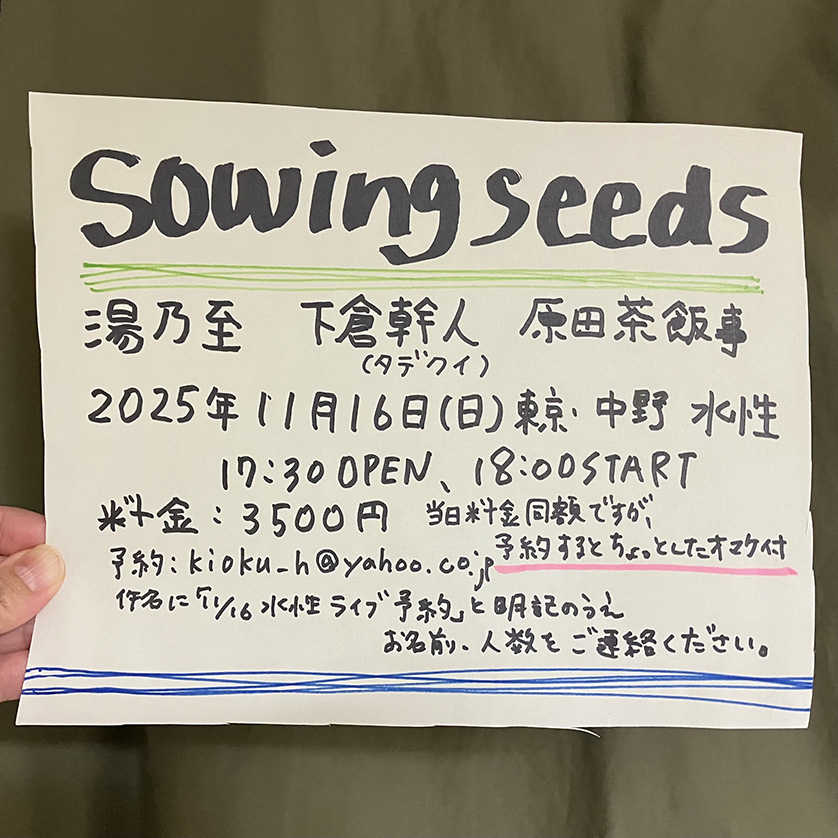 Sowing seeds
湯乃至 下倉幹人 原田茶飯事
(タデクイ)
2025年11月16日(日)東京・中野 水性
17:30 OPEN、18:00 START
料金:3500円 当日料金同額ですが、
予約するとちょっとしたオマケ付
予約:kioku_h@yahoo.co.jp
件名に「11/16 水性 ライブ予約」と明記のうえ
お名前、人数をご連絡ください。